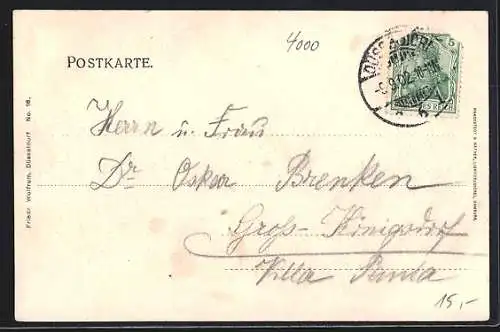 4000
POSTKARTE.
DÜSSELDORF
5
Herrn u. Frau
Dr Oskar Brenken
Gross-Königsdorf
Villa
15,-
Friedr. Wolfrum, Düsseldorf No. 16.